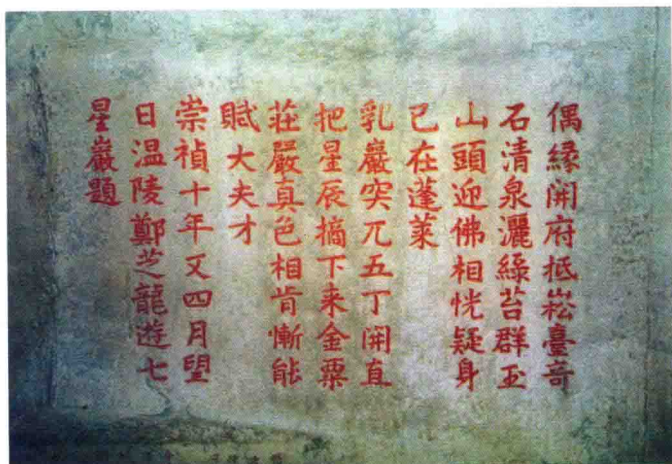 偶緣開府抵崧臺竒
石清泉灑綠苔群玉
山頭迎佛相恍疑身
已在蓬萊
乳巖突兀五丁開直
把星辰摘下来金粟
莊嚴真色相肯慚能
賦大夫才
崇禎十年又四月望
日温陵鄭芝龍遊七
星巖題